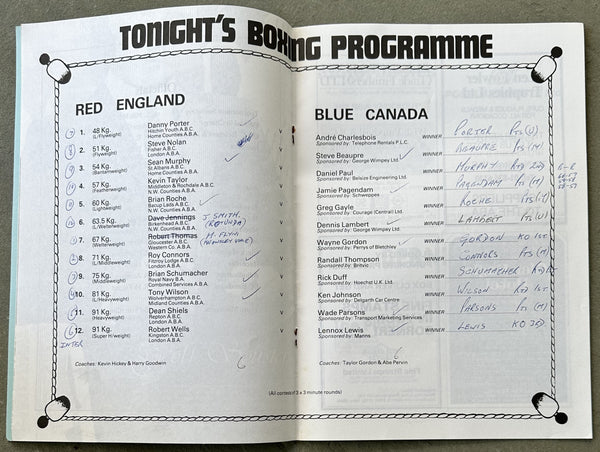 TONIGHT'S BOXING PROGRAMME
RED ENGLAND
1. 48 Kg. (L/Flyweight) Danny Porter
Hitchin Youth A.B.C.
Home Counties A.B.A.
2. 51 Kg. (Flyweight) Steve Nolan
Fisher A.B.C.
London A.B.A.
3. 54 Kg. (Bantamweight) Sean Murphy
St. Albans A.B.C.
Home Counties A.B.A.
4. 57 Kg. (Featherweight) Kevin Taylor
Middleton & Rochdale A.B.C.
N.W. Counties A.B.A.
5. 60 Kg. (Lightweight) Brian Roche
Bacup Lads A.B.C.
N.W. Counties A.B.A.
6. 63.5 Kg. (L/Welterweight) Dave Jennings J. SMITH
Birkenhead A.B.C. (ROTUNDA)
N.W. Counties A.B.A.
7. 67 Kg. (Welterweight) Robert Thomas
Gloucester A.B.C.
Western C. A.B.A.
8. 71 Kg. (L/Middleweight) Roy Connors
Fitzroy Lodge A.B.C.
London A.B.A.
9. 75 Kg. (Middleweight) Brian Schumacher
Royal Navy B.A.
Combined Services A.B.A.
10. 81 Kg. (L/Heavyweight) Tony Wilson
Wolverhampton A.B.C.
Midland Counties A.B.A.
11. 91 Kg. (Heavyweight) Dean Shiels
Repton A.B.C.
London A.B.A.
12. 91 Kg. (Super H/weight) Robert Wells
Kingston A.B.C.
London A.B.A.
INTER
Coaches: Kevin Hickey & Harry Goodwin
6
BLUE CANADA
André Charlesbois WINNER PORTER PTS (U)
Sponsored by: Telephone Rentals P.L.C.
Steve Beaupre WINNER BEAUPRE PTS (M)
Sponsored by: George Wimpey Ltd
Daniel Paul WINNER MURPHY
Sponsored by: Belsize Engineering Ltd
Jamie Pagendam WINNER PAGENDAM PTS (M)
Sponsored by: Schweppes
Greg Gayle WINNER ROCHE PTS
Sponsored by: Courage (Central) Ltd.
Dennis Lambert WINNER LAMBERT PTS (U)
Sponsored by: George Wimpey Ltd.
Wayne Gordon WINNER GORDON KO 1ST
Sponsored by: Perrys of Bletchley
Randall Thompson WINNER CONNORS PTS (M)
Sponsored by: Britvic
Rick Duff WINNER SCHUMACHER
Sponsored by: Hoechst U.K. Ltd.
Ken Johnson WINNER WILSON 1ST
Sponsored by: Delgarth Car Centre
Wade Parsons WINNER PARSONS PTS (M)
Sponsored by: Transport Marketing Services
Lennox Lewis WINNER LEWIS KO
Sponsored by: Marins
Coaches: Taylor Gordon & Abe Pervin
6
(All contest of 3 x 3 minute rounds)